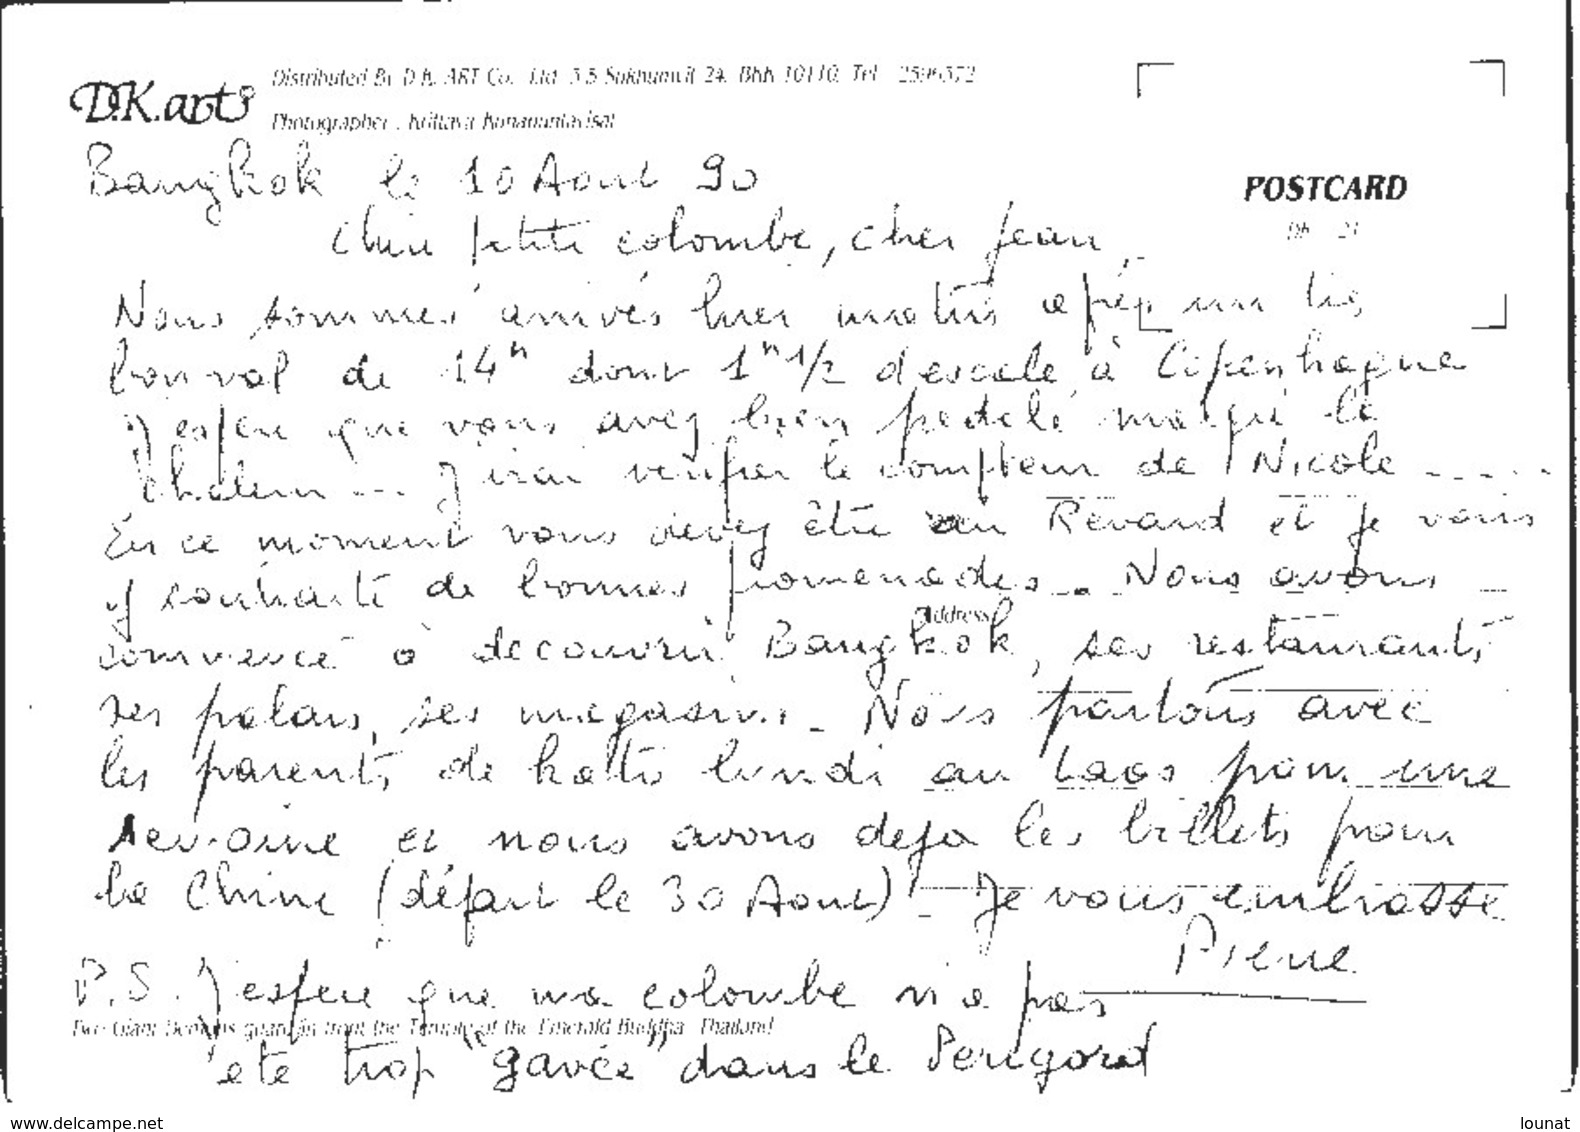 D.K.arts
Distributed By D.K. ART Co. Ltd 3.5 Sukhumvit 24, Bkk 10110, Tel
Photographer :
Bangkok le 10 Aout 90
POSTCARD
chère petite colombe, cher Jean,
Nous sommes arrivés hier matin après un très
bon vol de 14h dont 1h 1/2 d'escale à Copenhague
J'espère que vous avez bien pédalé malgré la
chaleur ... J'irai vérifier le compteur de Nicole .....
En ce moment vous devez être au Revard et je vous
y souhaite de bonnes promenades - Nous avons
Address
commencé à decouvrir Bangkok, ses restaurants
ses palais, ses magasins - Nous partons avec
les parents de lundi au Laos pour une
semaine et nous avons deja les billets pour
la Chine (départ le 30 Aout) - Je vous embrasse
Pierre
P.S. J'espère que ma colombe n'a pas
Two Giant Demons guard in front the Temple of the Emerald Buddha Thailand
été trop "gavée" dans le Perigord
www.delcampe.net
lounat